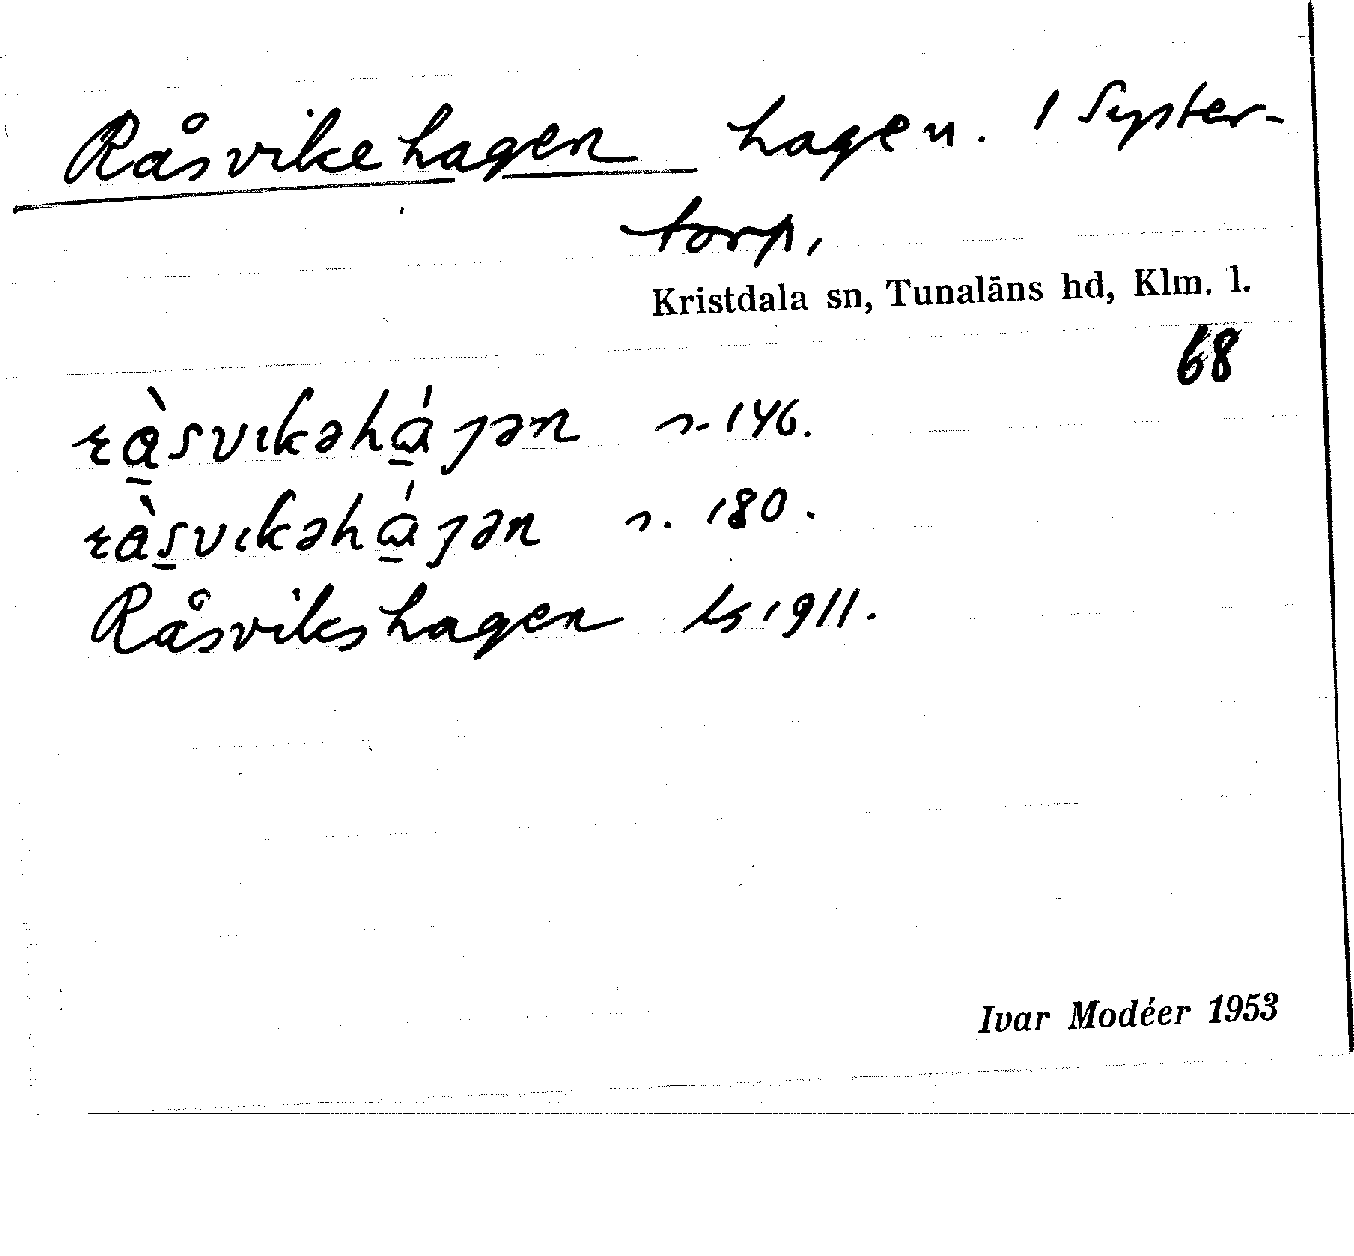 Råsvikehagen hagen. 1 Syster-
torp,
Kristdala sn, Tunaläns hd, Klm. l.
68
rà̠svıkəhá̠ɟən s. 146.
ràs̠vıkəhá̠ɟən s. 180.
Råsvikshagen ls 1911.
Ivar Modéer 1953